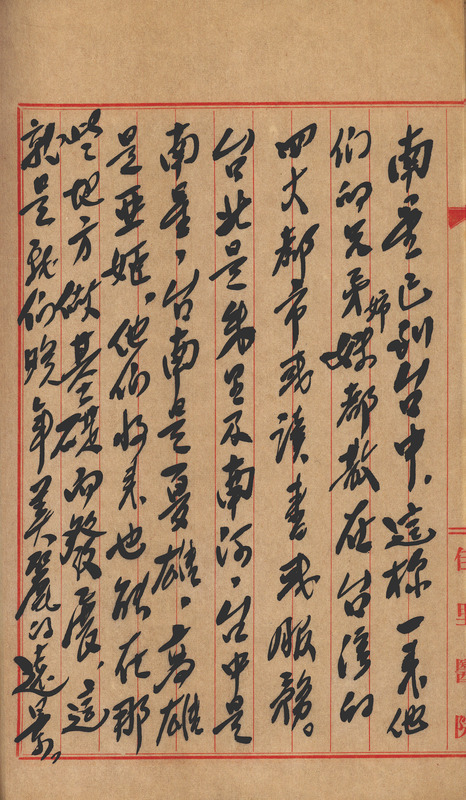 佳里醫院
南星已到台中。這樣一來他
們的兄弟姊妹都散在台灣的
四大都市或讀書或服務。
台北是朱里及南河、台中是
南星、台南是夏雄、高雄
是亞姬、他們將來也能在那
些地方做基礎而發展、這
就是我們晚年美麗的遠景。